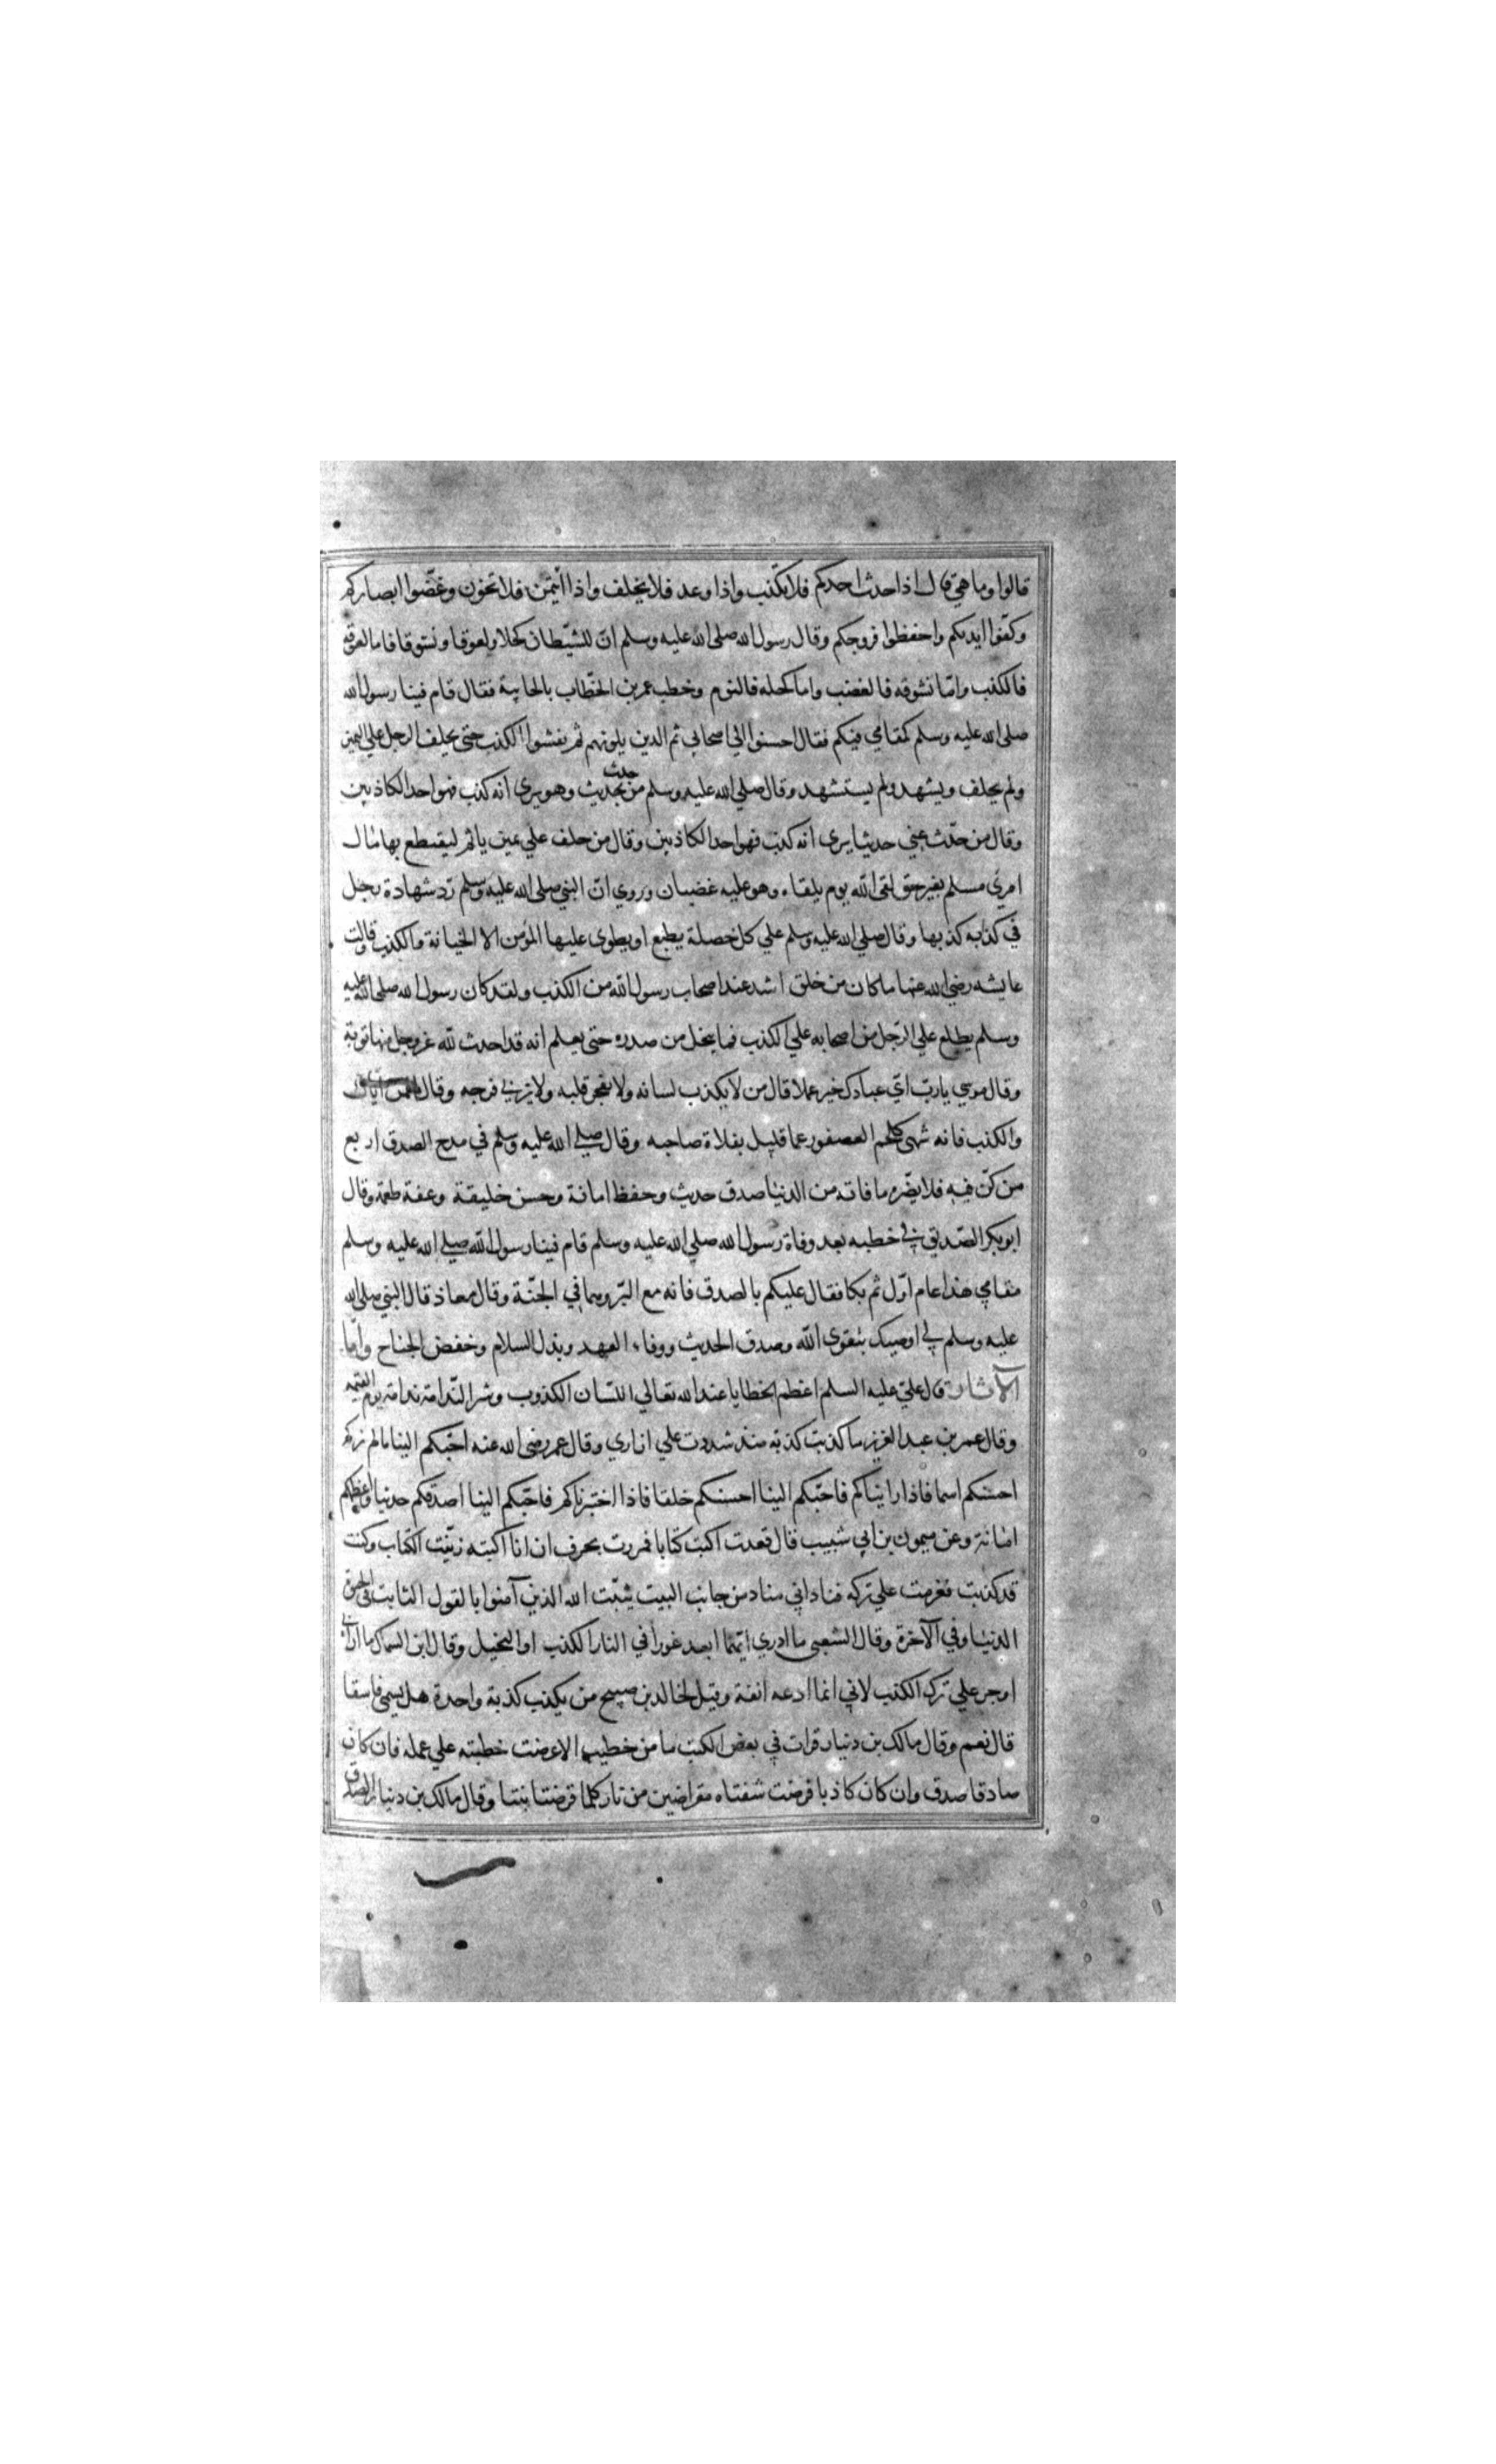 قالوا وما هي قال اذا حدث احدكم فلا يكذب واذا وعد فلا يخلف واذا ائتمن فلا تخون وغضّوا ابصاركم
وكفّوا ايديكم واحفظوا فروجكم وقال رسول الله صلى الله عليه وسلم انّ للشيطان كحلا ولعوقا ونشوقا فاما لعوقه
فالكذب وامّا نشوقه فالغضب واما كحله فالنوم وخطب عمر بن الخطّاب بالجابية فقال قام فينا رسول الله
صلى الله عليه وسلم كمقامي فيكم فقال احسنوا الي اصحابي ثم الذين يلونهم ثم يفشوا الكذب حتى يحلف الرجل علي اليمين
ولم يحلف ويشهد ولم يستشهد وقال صلي الله عليه وسلم من حدث بحديث وهو يرى انه كذب فهو احد الكاذبين
وقال من حدّث عني حديثا يرى انه كذب فهو احد الكاذبين وقال من حلف علي يمين ياثم ليقتطع بها مال
امرئ مسلم بغير حق لقى الله يوم يلقاه وهو عليه غضبان وروي انّ النبي صلى الله عليه وسلم ردّ شهادة رجل
في كذبه كذبها وقال صلي الله عليه وسلم علي كل خصلة يطبع او يطوى عليها المؤمن الا الخيانة والكذب وقالت
عايشه رضي الله عنها ما كان من خلق اشد عند اصحاب رسول الله من الكذب ولقد كان رسول الله صلى الله عليه
وسلم يطلع علي الرّجل من اصحابه علي الكذب فما ينحل من صدره حتى يعلم انه قد احدث لله عز وجل منها توبة
وقال موسي يا ربّ ايّ عبادك خير عملا قال من لا يكذب لسانه ولا يفجر قلبه ولا يزني فرجه وقال لقمن اياك
والكذب فانه شهى كلحم العصفور عما قليل يقلاه صاحبه وقال صلى الله عليه وسلم في مدح الصدق اربع
من كنّ فيه فلا يضّره ما فاته من الدنيا صدق حديث وحفظ امانة وحسن خليقة وعفة طعمة وقال
ابو بكر الصّديق في خطبه بعد وفاة رسول الله صلي الله عليه وسلم قام فينا رسول الله صلى الله عليه وسلم
مقامي هذا عام اوّل ثم بكا فقال عليكم بالصدق فانه مع البرّ وهما في الجنّة وقال معاذ قال النبي صلى الله
عليه وسلم لي اوصيك بتقوى الله وصدق الحديث ووفاء العهد وبذل السلام وخفض الجناح واما
الآثار قال علىّ عليه السلم اعظم الخطايا عند الله تعالي اللسان الكذوب وشر النّدامة ندامة يوم القيمة
وقال عمر بن عبد العزيز ما كذبت كذبة منذ شددت علي ازاري وقال عمر رضى الله عنه احبّكم الينا ما لم نركم
احسنكم اسما فاذا رايناكم فاحبّكم الينا احسنكم خلقا فاذا اختبرناكم فاحبّكم الينا اصدقكم حديثا واعظمكم
امانة وعن ميمون بن ابي شبيب قال قعدت اكتب كتابا فمررت بحرف ان انا اكتبه زيّنت الكتاب وكنت
قد كذبت فعزمت علي تركه فناداني مناد من جانب البيت يثبّت الله الذين آمنوا بالقول الثابت في الحيوة
الدنيا وفي الآخرة وقال الشعبي ما ادري ايّهما ابعد غورا في النار الكذب او البخيل وقال ابن السماك ما اراني
اوجر علي ترك الكذب لاني انما ادعه انفة وقيل لخالد بن صبيح من يكذب كذبة واحدة هل يسمى فاسقا
قال نعم وقال مالك بن دينار قرات في بعض الكتب ما من خطيب الا عرضت خطبته علي عمله فان كان
صادقا صدق وان كان كاذبا قرضت شفتاه مقراضين من نار كلما قرضتا نبتتا وقال مالك بن دينار الصدق